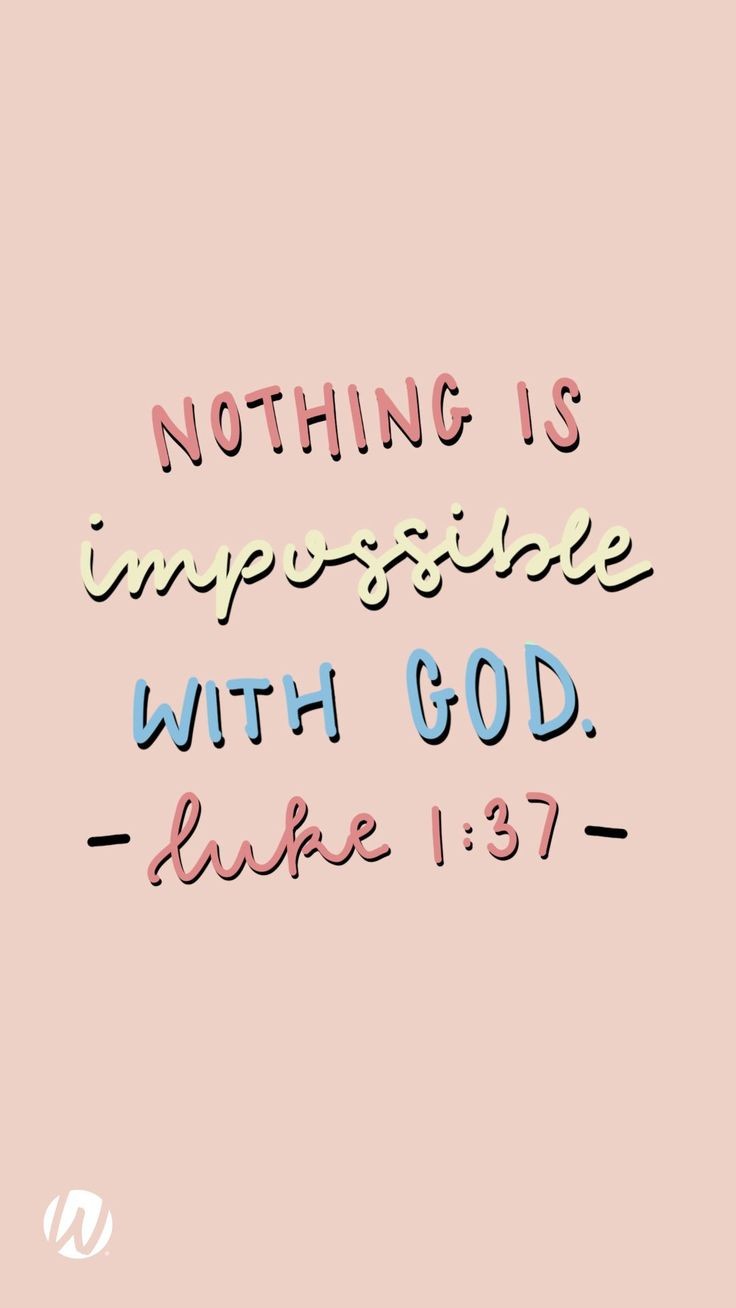 NOTHING IS
impossible
WITH GOD.
- Luke 1:37 -
W